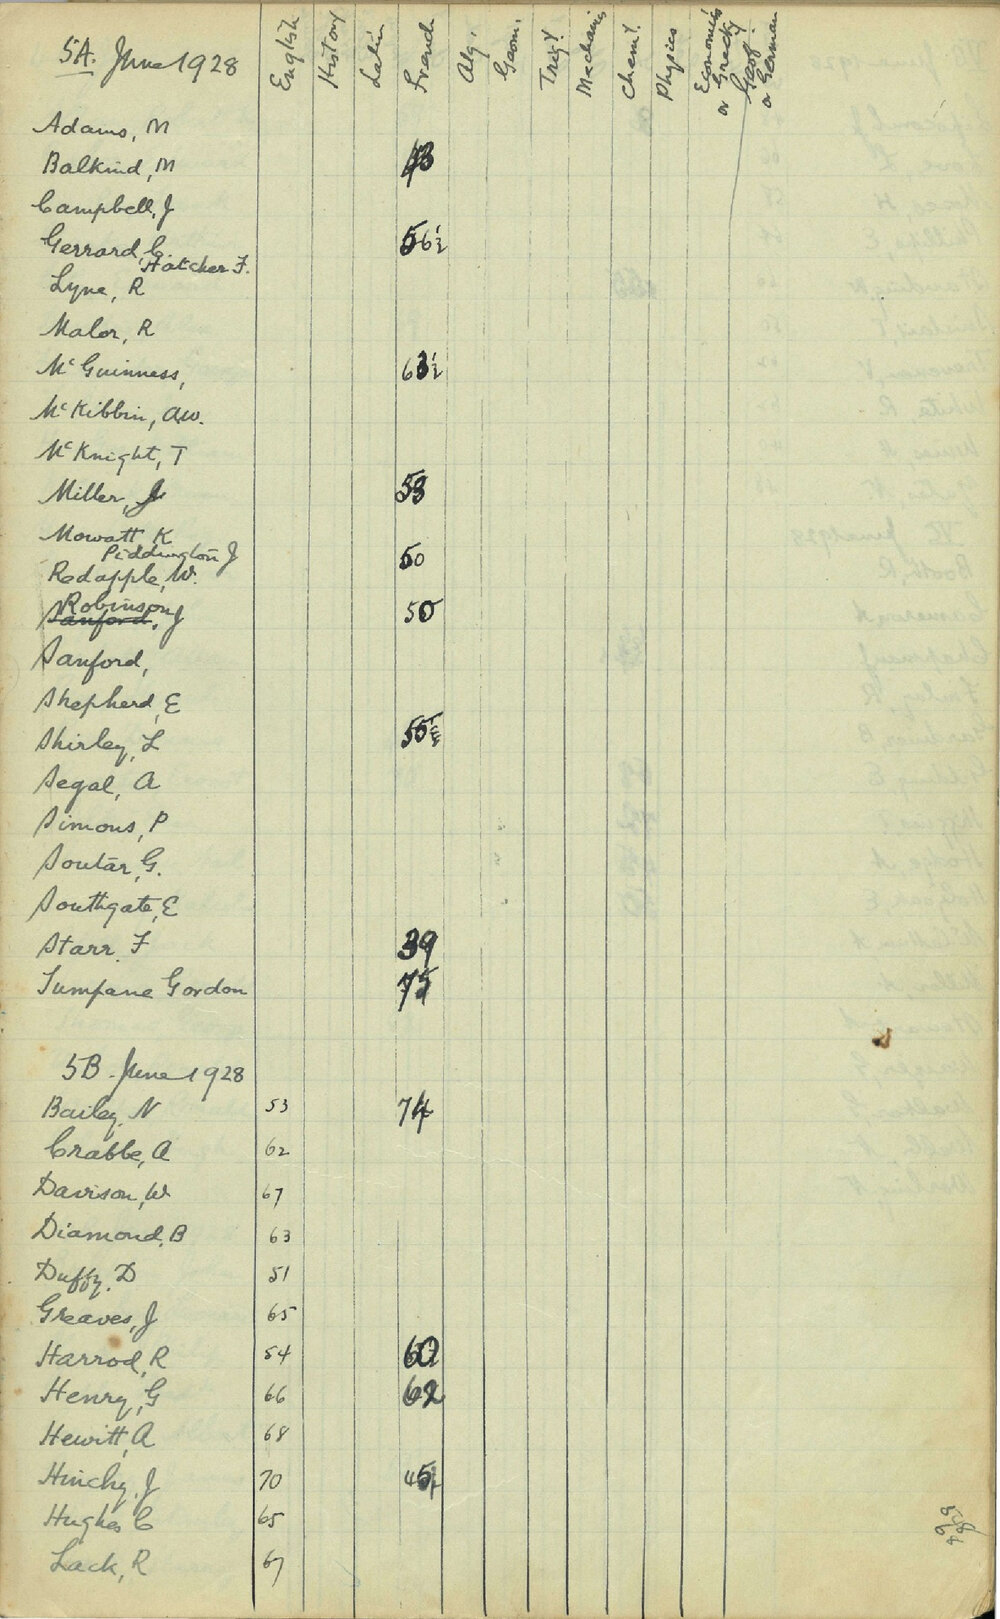 5A. June 1928 English History Latin French Alg. Geom. Trig! Mechanics Chem!. Physics Economics or Greek Geog! or German
Adams, M
Balkind, M 43
Campbell, J
Gerrard, C. 56½
Hatcher F.
Lyne, R
Malor, R
McGuinness, 63½
McKibbin, A.W.
McKnight, T
Miller, J 53
Mowatt K
Piddington J 50
Redapple, W.
Robinson
Sanford, J 50
Sanford,
Shepherd, E
Shirley, L 55½
Segal, A
Simons, P
Soutar, G.
Southgate, E
Starr. F 39
Tumpane Gordon 75
5B. June 1928
Bailey, N 53 74
Crabbe, A 62
Davison, W 67
Diamond, B 63
Duffy. D 51
Greaves, J 65
Harrod, R 54 60
Henry, G 66 62
Hewitt, A 68
Hinchy. J 70 45
Hughes C 65
Lack, R 67